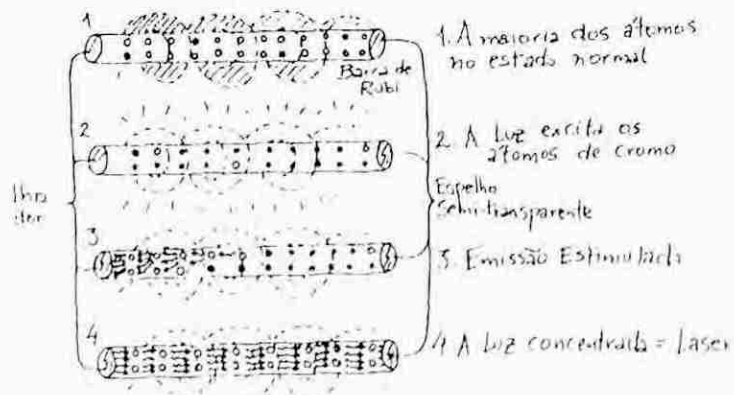 1
1. A maioria dos átomos
no estado normal
Barra de
Rubi
2
2. A Luz excita os
átomos de cromo
Espelho
Semi-transparente
3
3. Emissão Estimulada
4
4 A Luz concentrada = Laser